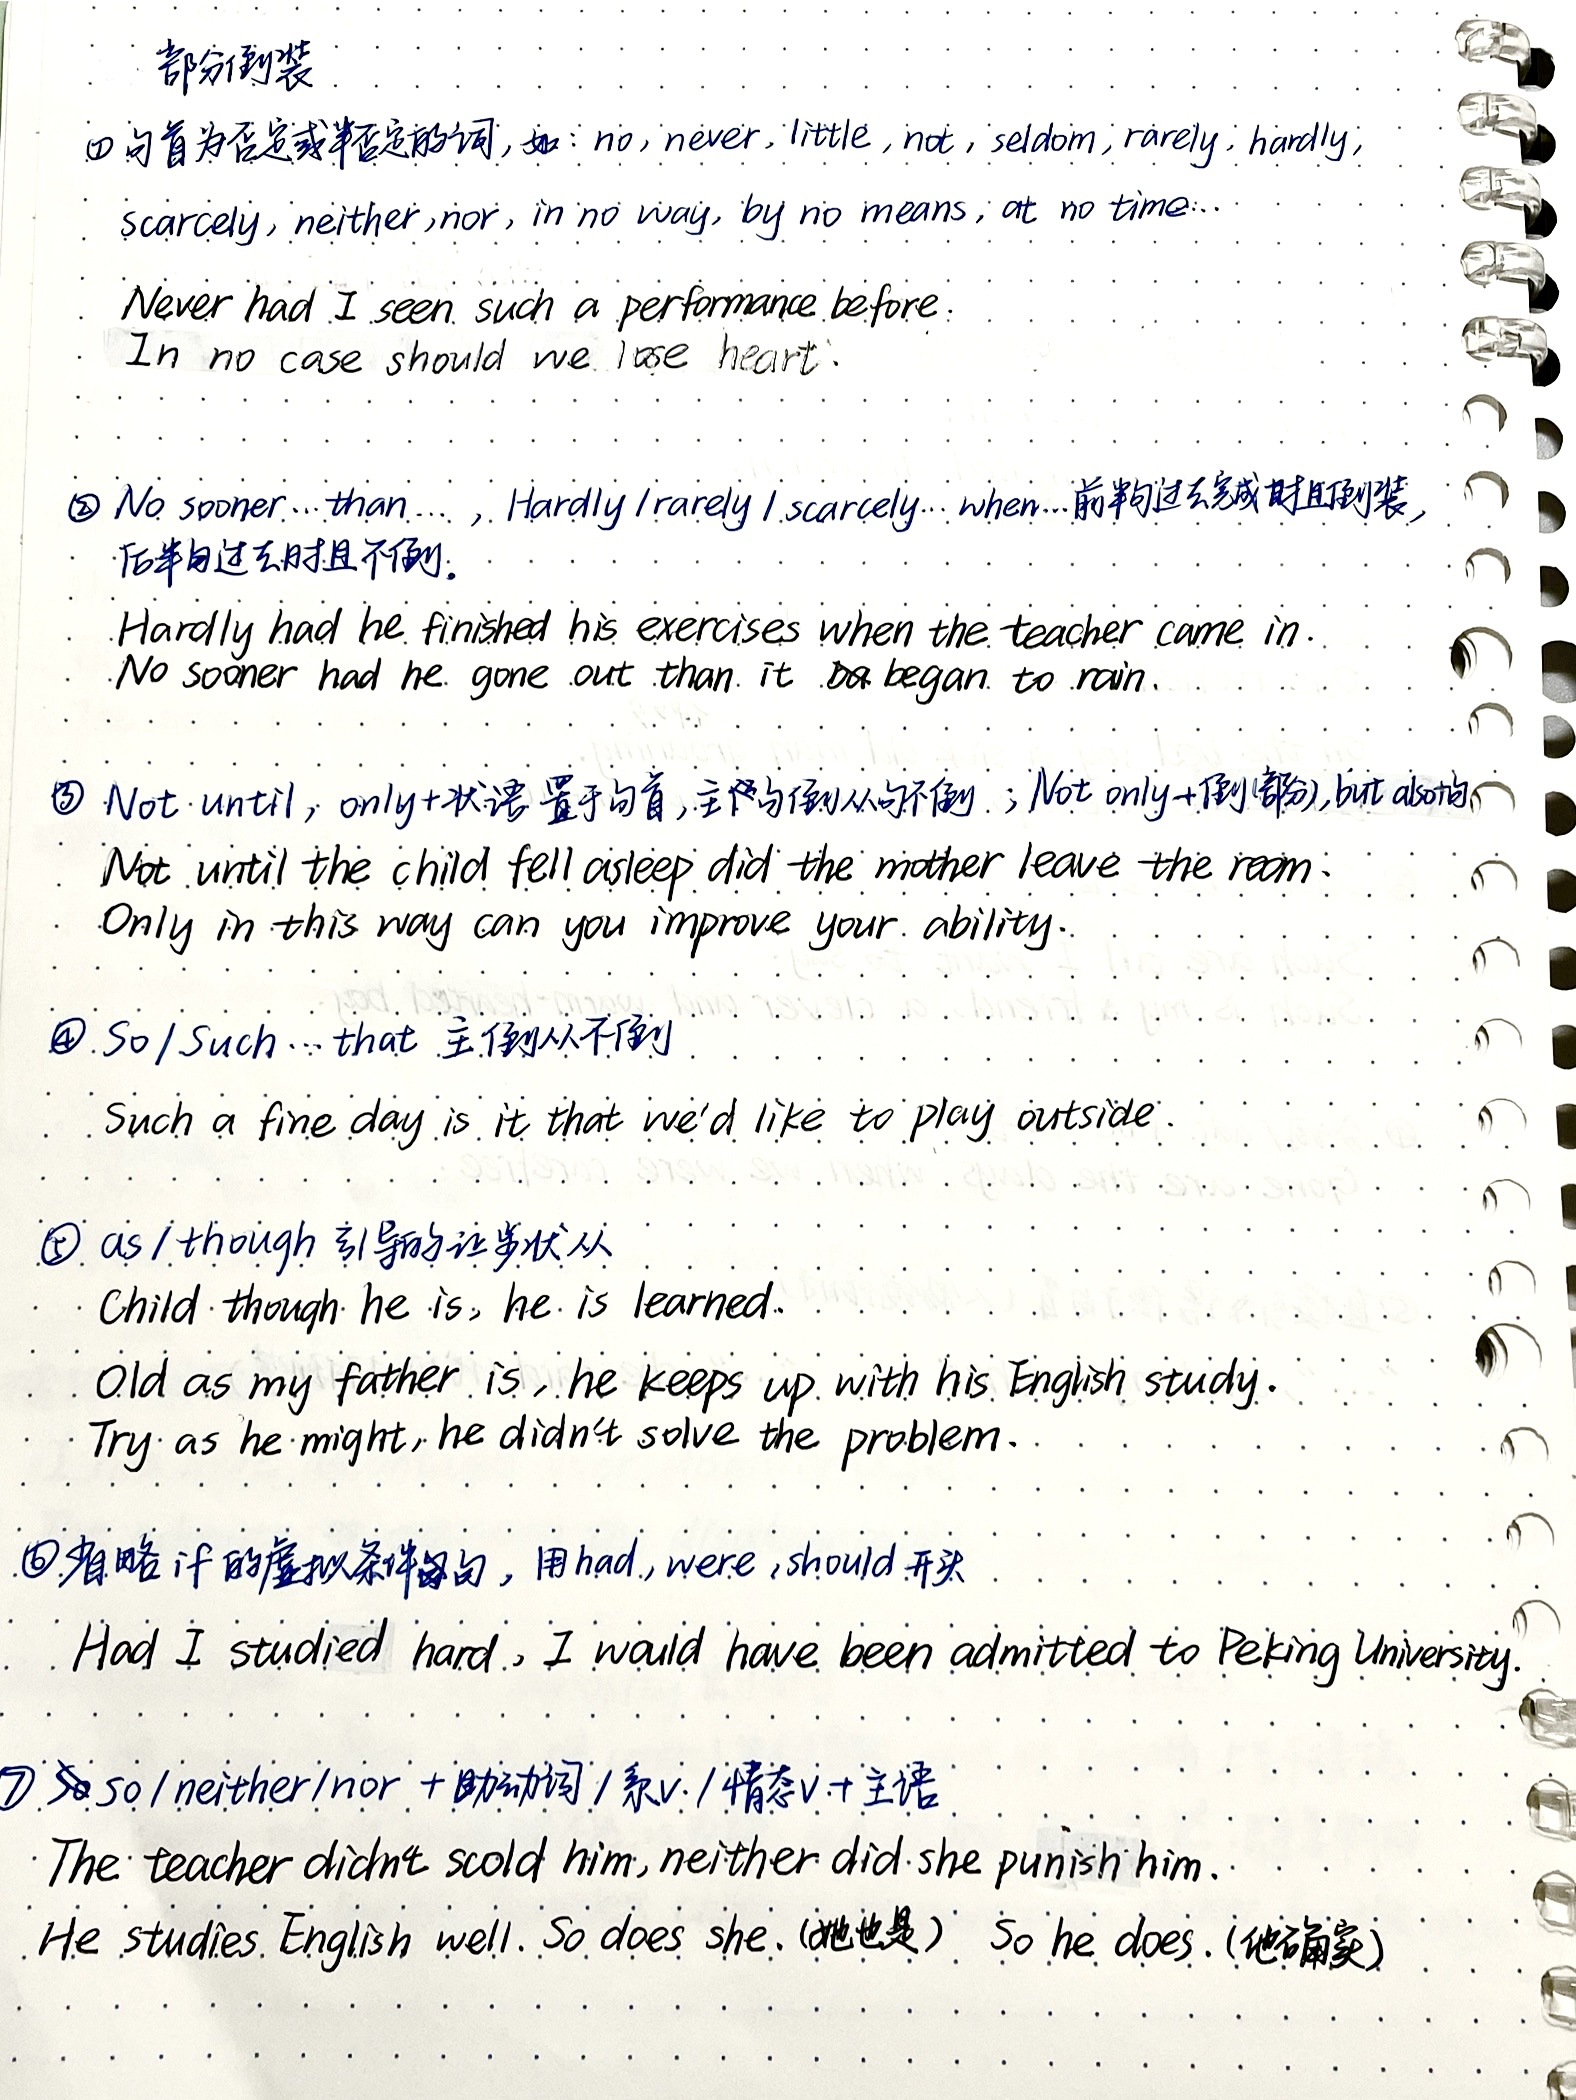 部分倒装
① 句首为否定或半否定的词,如: no, never, little, not, seldom, rarely, hardly,
scarcely, neither, nor, in no way, by no means, at no time...
Never had I seen such a performance before.
In no case should we lose heart.
② No sooner...than..., Hardly/rarely/scarcely...when...前半句过去完成时且倒装,
后半句过去时且不倒.
Hardly had he finished his exercises when the teacher came in.
No sooner had he gone out than it began to rain.
③ Not until, only+状语置于句首,主句倒从句不倒; Not only+倒(部分), but also+句
Not until the child fell asleep did the mother leave the room.
Only in this way can you improve your ability.
④ So/Such...that 主倒从不倒
Such a fine day is it that we'd like to play outside.
⑤ as/though 引导的让步状从
Child though he is, he is learned.
Old as my father is, he keeps up with his English study.
Try as he might, he didn't solve the problem.
⑥ 省略if的虚拟条件句, 用had, were, should开头
Had I studied hard, I would have been admitted to Peking University.
⑦ so/neither/nor + 助动词/系v./情态v.+主语
The teacher didn't scold him, neither did she punish him.
He studies English well. So does she. (她也是) So he does. (他确实)